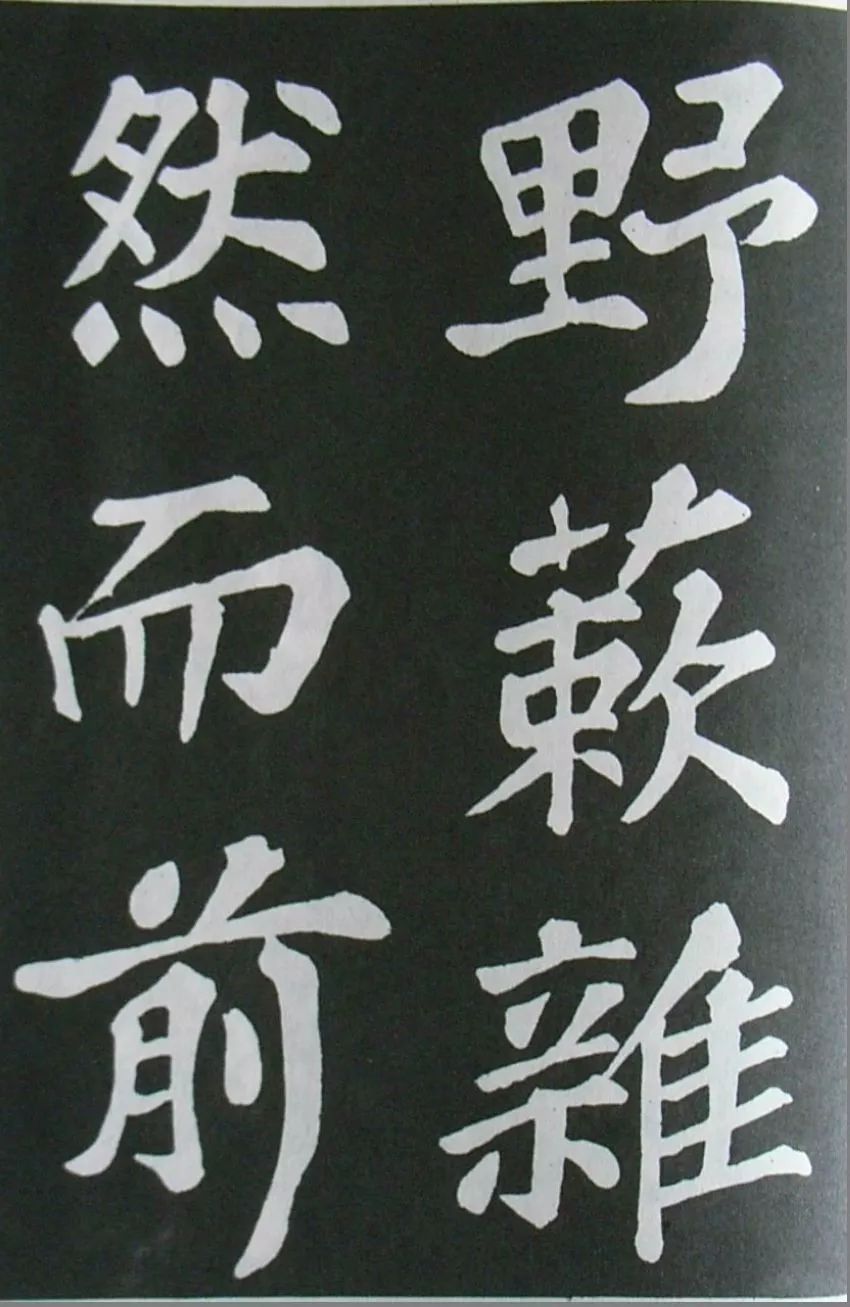 野蔌雜
然而前